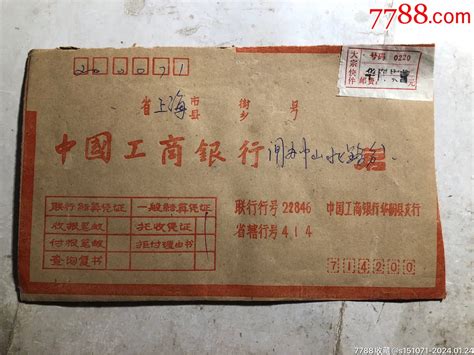 7788.com
大宗快件 号码 0220
邮资
200071
省上海市县 街乡 号
中国工商银行 闸办中山北路
联行结算凭证 一般结算凭证
收报总邮 托收凭证
付报总邮 拒付理由书
查询复书
联行行号 22846 中国工商银行华阴县支行
省辖行号 414
714200
7788收藏@s151071-2024.01.24